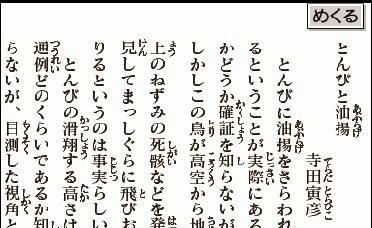 めくる
とんびと油揚
寺田寅彦
とんびに油揚をさらわれ
るということが実際にある
かどうか確証を知らないが
しかしこの鳥が高空から地
上のねずみの死骸などを発
見してまっしぐらに飛びお
りるというのは事実らしい
とんびの滑翔する高さは
通例どのくらいであるか知
らないが、目測した視角と